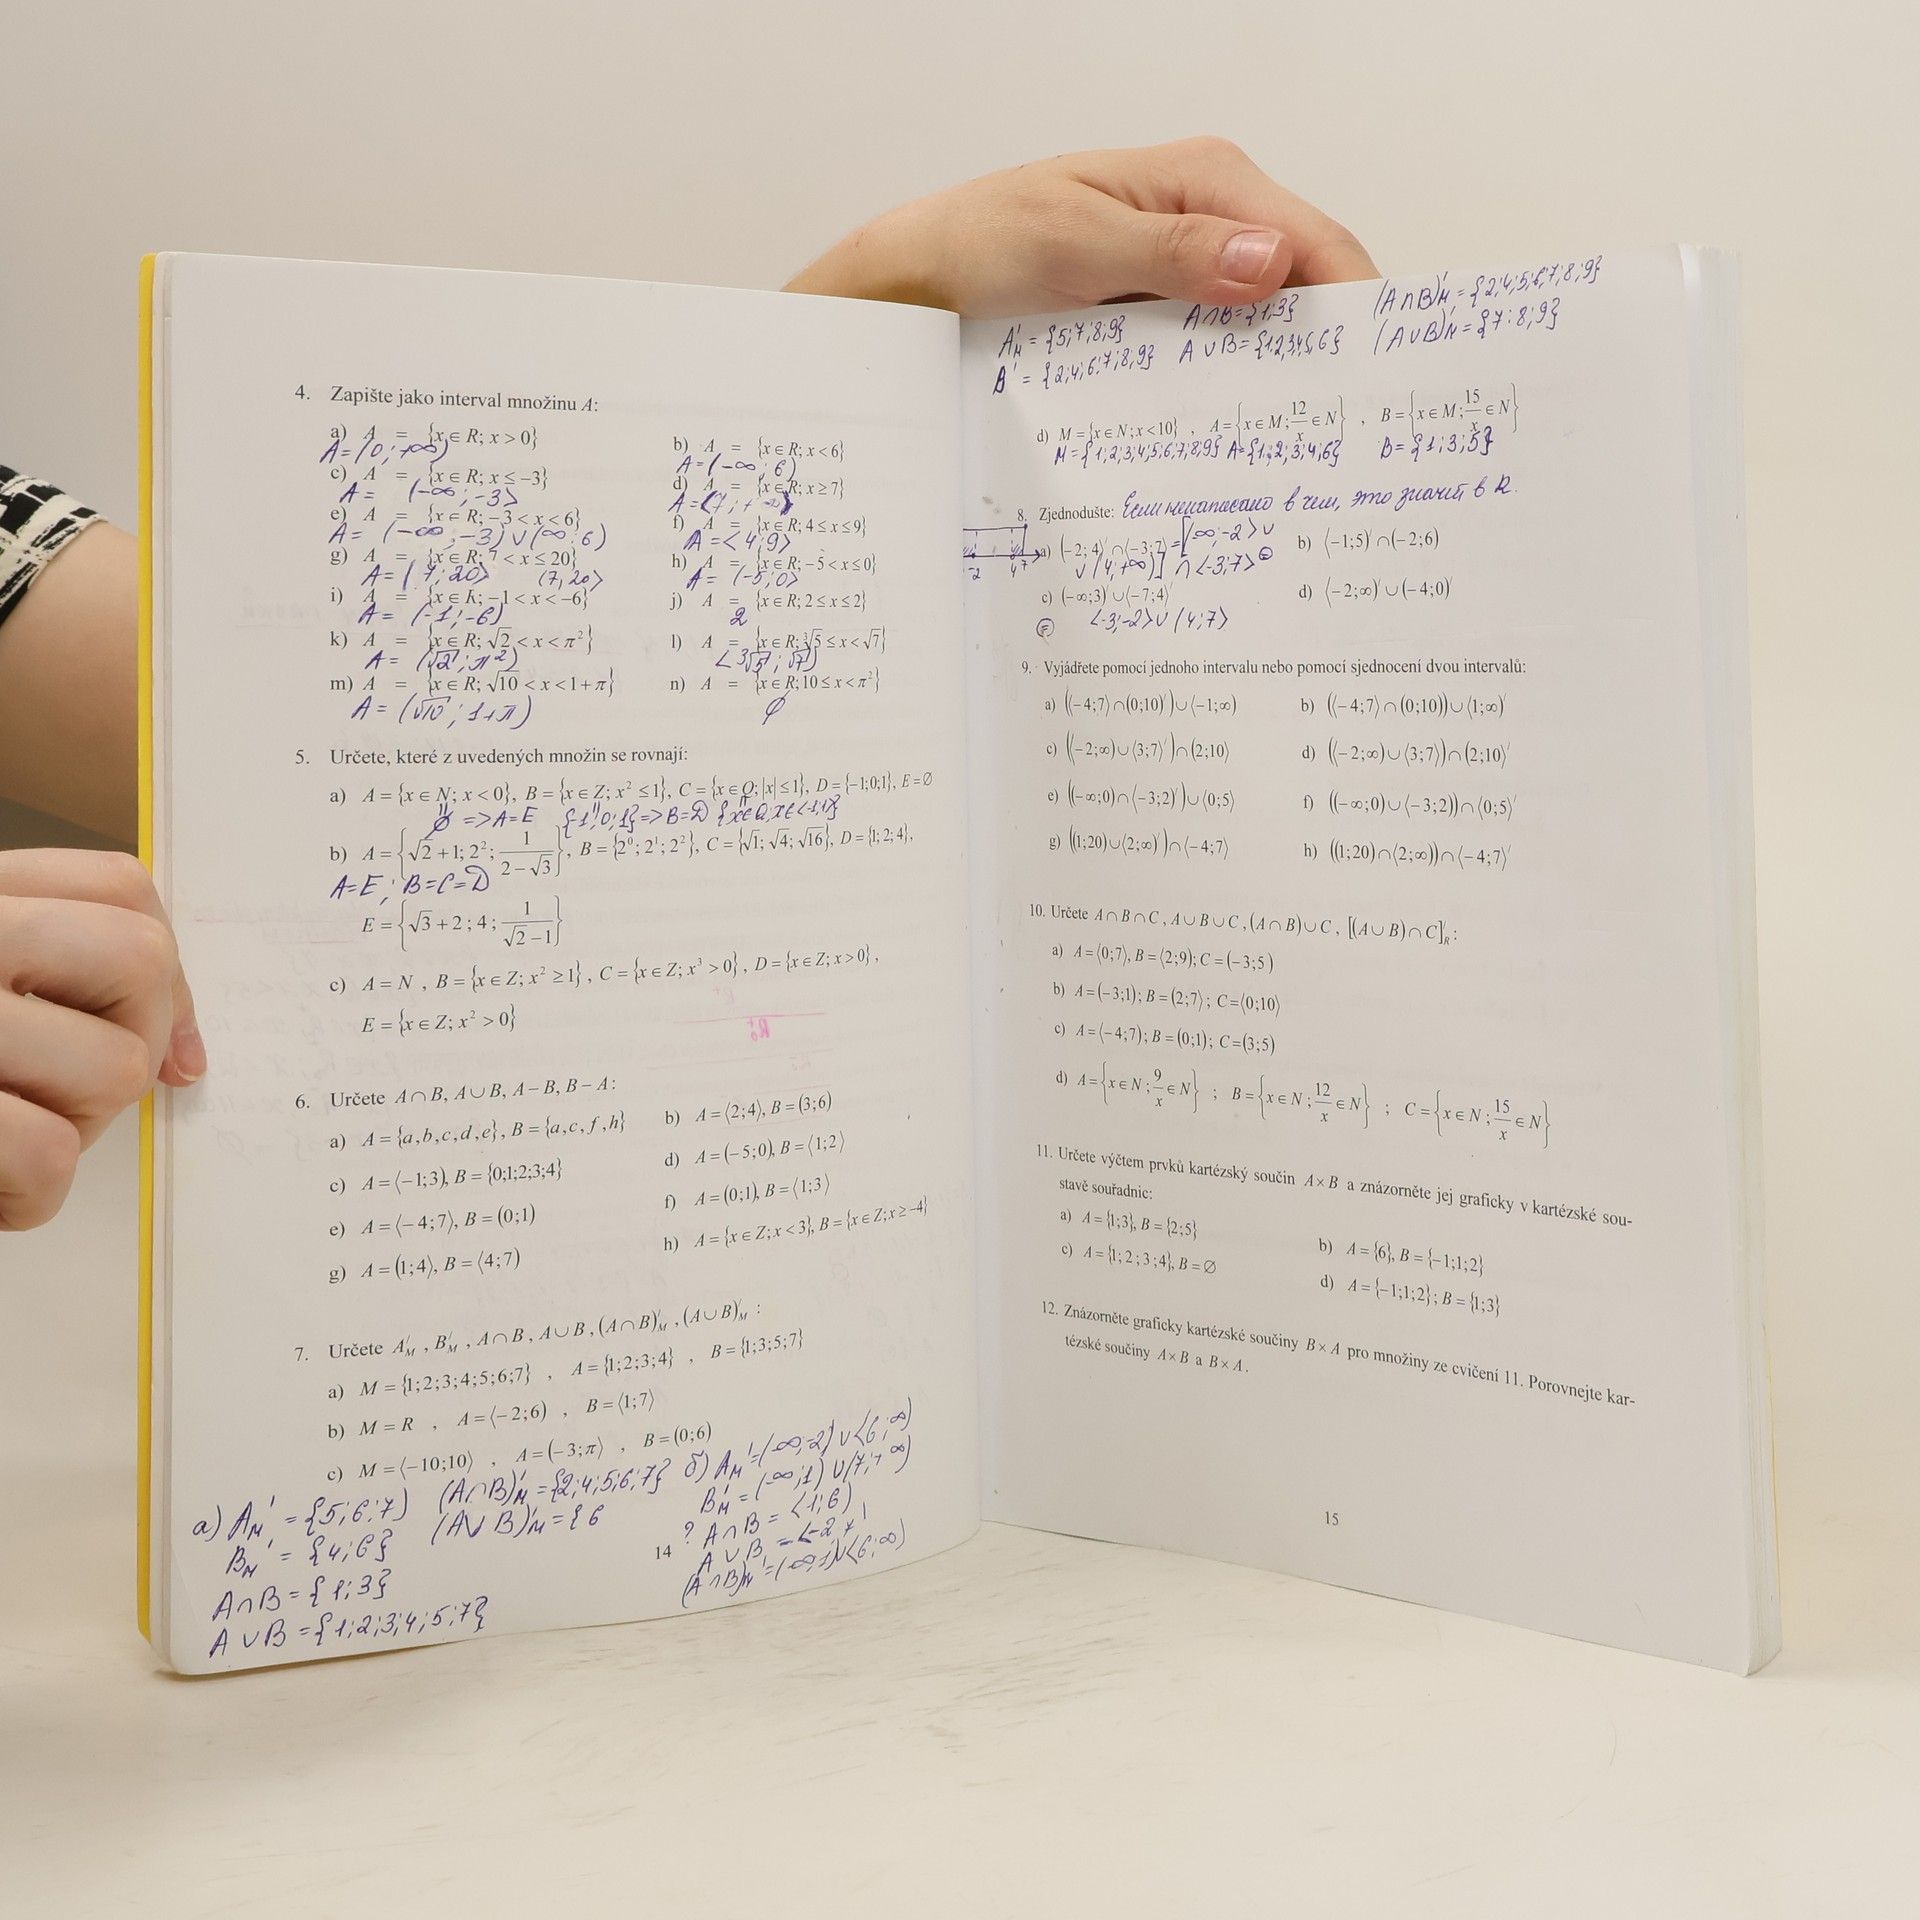 4. Zapište jako interval množinu A:
a) A = {x∈R; x > 0}
A=(0; +∞)
b) A = {x∈R; x < 6}
A=(-∞; 6)
c) A = {x∈R; x ≤ −3}
A= (-∞; -3>
d) A = {x∈R; x ≥ 7}
A=<7; +∞)
e) A = {x∈R; −3 < x < 6}
A= (-∞; -3) ∪ (∞; 6)
f) A = {x∈R; 4 ≤ x ≤ 9}
A=<4; 9>
g) A = {x∈R; 7 < x ≤ 20}
A=(7; 20> (7, 20>
h) A = {x∈R; −5 < x ≤ 0}
A= (-5; 0>
i) A = {x∈R; −1 < x < −6}
A= (-1; -6)
j) A = {x∈R; 2 ≤ x ≤ 2}
2
k) A = {x∈R; √2 < x < π²}
A= (√2; π²)
l) A = {x∈R; ∛5 ≤ x < √7}
<³√5; √7)
m) A = {x∈R; √10 < x < 1+π}
A= (√10; 1+π)
n) A = {x∈R; 10 ≤ x < π²}
∅
5. Určete, které z uvedených množin se rovnají:
a) A = {x∈N; x < 0}, B = {x∈Z; x² ≤ 1}, C = {x∈Q; |x| ≤ 1}, D = {−1;0;1}, E = ∅
∅ => A=E {-1; 0; 1} => B=D
b) A = {√2 + 1; 2²; 1/(2−√3)}, B = {2⁰; 2¹; 2²}, C = {√1; √4; √16}, D = {1; 2; 4},
A=E; B=C=D
E = {√3 + 2; 4; 1/(√2−1)}
c) A = N , B = {x∈Z; x² ≥ 1}, C = {x∈Z; x³ > 0}, D = {x∈Z; x > 0},
E = {x∈Z; x² > 0}
6. Určete A∩B, A∪B, A−B, B−A:
a) A = {a,b,c,d,e}, B = {a,c,f,h}
b) A = ⟨2;4), B = (3;6)
c) A = ⟨−1;3), B = {0;1;2;3;4}
d) A = (−5;0), B = ⟨1;2⟩
e) A = ⟨−4;7), B = (0;1)
f) A = (0;1), B = ⟨1;3⟩
g) A = (1;4⟩, B = ⟨4;7)
h) A = {x∈Z; x < 3}, B = {x∈Z; x ≥ −4}
7. Určete A′M , B′M , A∩B, A∪B, (A∩B)′M , (A∪B)′M :
a) M = {1;2;3;4;5;6;7} , A = {1;2;3;4} , B = {1;3;5;7}
b) M = R , A = ⟨−2;6) , B = ⟨1;7⟩
c) M = ⟨−10;10⟩ , A = (−3;π⟩ , B = (0;6)
a) A′M = {5; 6; 7}
(A∩B)′M = {2;4;5;6;7}
B′M = {4; 6}
(A∪B)′M = {6
A∩B = {1; 3}
A∪B = {1;2;3;4;5;7}
б) A′M = (-∞;-2) ∪ <6;∞)
B′M = (-∞;1) ∪ (7;+∞)
? A∩B = <1;6)
A∪B = <-2,7
(A∩B)′M = (-∞;1) ∪ <6;∞)
14
A′M = {5;7;8;9}
A∩B = {1;3}
(A∩B)′M = {2;4;5;6;7;8;9}
B′ = {2;4;6;7;8;9}
A∪B = {1,2,3,4,5,6}
(A∪B)′M = {7;8;9}
d) M = {x∈N; x < 10} , A = {x∈M; 12/x ∈N} , B = {x∈M; 15/x ∈N}
M={1;2;3;4;5;6;7;8;9} A={1;2;3;4;6} B={1;3;5}
8. Zjednodušte: Если ненаписано в чем, это значит в R.
a) (−2; 4)′∩⟨−3;7⟩ =[(∞;-2> ∪
∪ (4;+∞)] ∩ <-3;7> =
b) ⟨−1;5)′∩(−2;6)
c) (−∞;3)′∪(−7;4)′
d) ⟨−2;∞)′∪(−4;0)′
= <-3;-2> ∪ (4;7>
-2 4 7
9. Vyjádřete pomocí jednoho intervalu nebo pomocí sjednocení dvou intervalů:
a) (⟨−4;7)∩(0;10)′)∪⟨−1;∞)
b) (⟨−4;7)∩(0;10))∪⟨1;∞)′
c) (⟨−2;∞)∪⟨3;7)′)∩(2;10⟩
d) (⟨−2;∞)∪⟨3;7⟩)∩(2;10⟩′
e) ((−∞;0)∩⟨−3;2)′)∪⟨0;5)
f) ((−∞;0)∪⟨−3;2))∩⟨0;5)′
g) ((1;20)∪⟨2;∞)′)∩⟨−4;7)
h) ((1;20)∩⟨2;∞))∩⟨−4;7)′
10. Určete A∩B∩C, A∪B∪C, (A∩B)∪C, [(A∪B)∩C]′R :
a) A = ⟨0;7), B = ⟨2;9); C = (−3;5)
b) A = (−3;1); B = (2;7⟩; C = ⟨0;10⟩
c) A = ⟨−4;7); B = (0;1); C = (3;5)
d) A = {x∈N; 9/x ∈N} ; B = {x∈N; 12/x ∈N} ; C = {x∈N; 15/x ∈N}
11. Určete výčtem prvků kartézský součin A×B a znázorněte jej graficky v kartézské sou-
stavě souřadnic:
a) A = {1;3}, B = {2;5}
b) A = {6}, B = {−1;1;2}
c) A = {1; 2; 3; 4}, B = ∅
d) A = {−1;1;2}; B = {1;3}
12. Znázorněte graficky kartézské součiny B×A pro množiny ze cvičení 11. Porovnejte kar-
tézské součiny A×B a B×A.
15